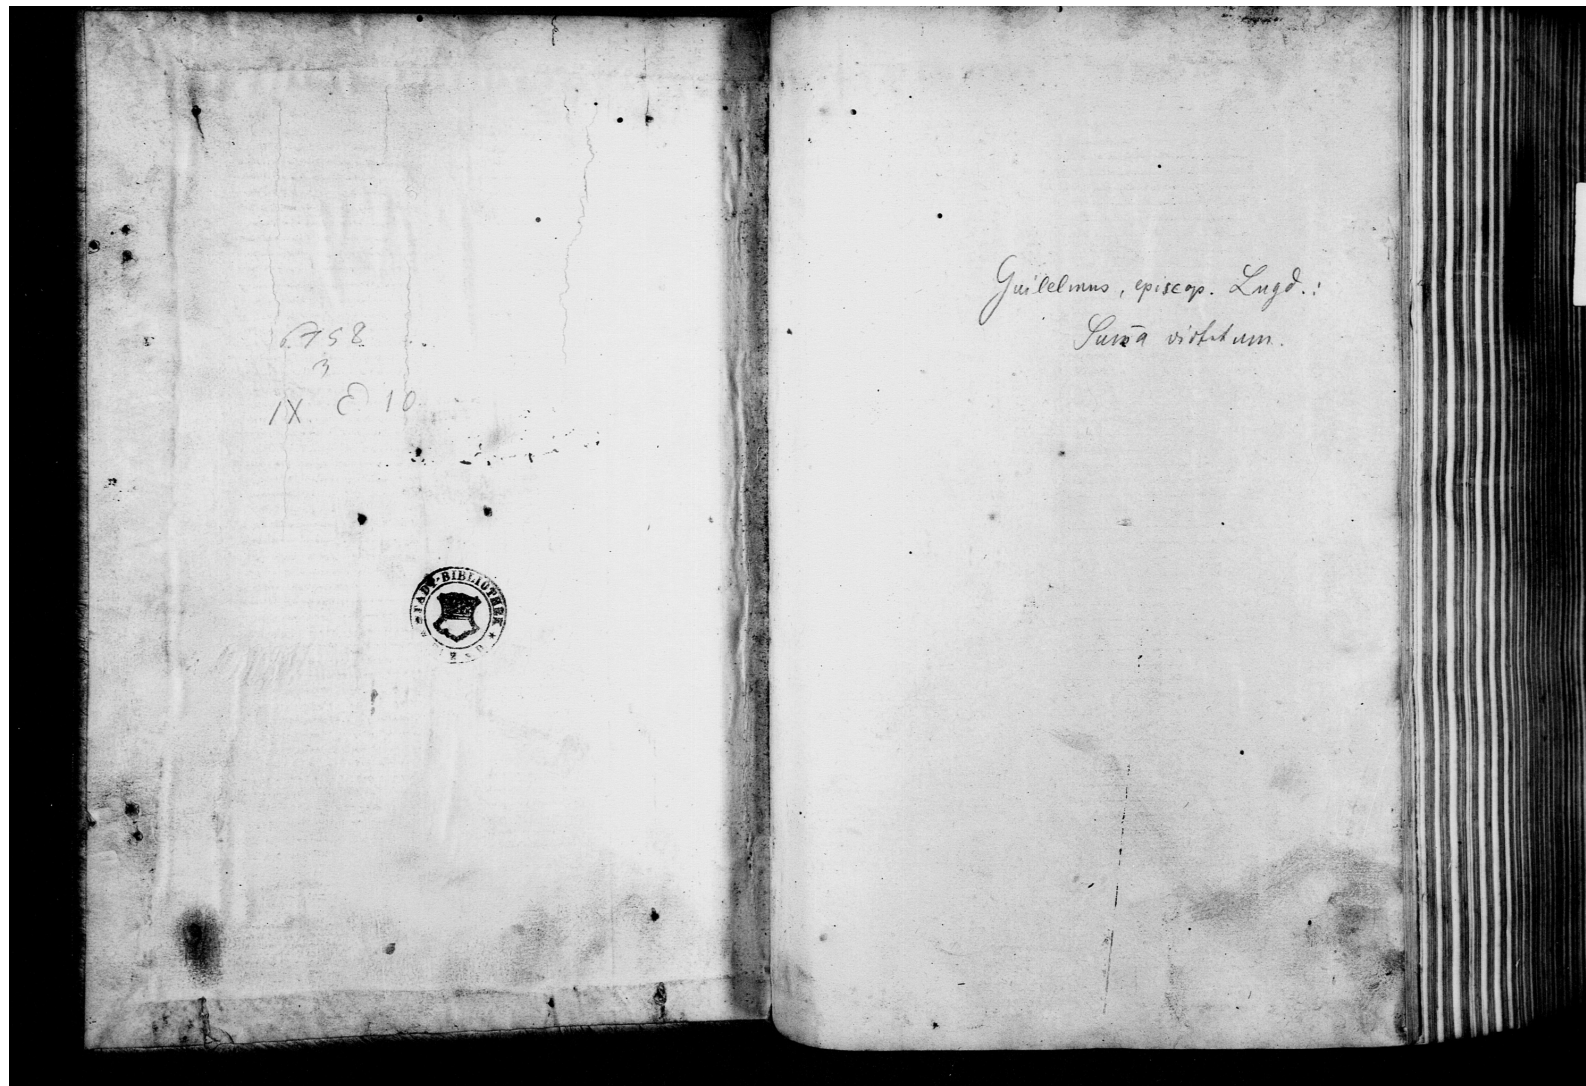 6758
3
IX E 10
STADT-BIBLIOTHEK
Guilelmus, episcop. Lugd.:
Sum̄a virtutum.